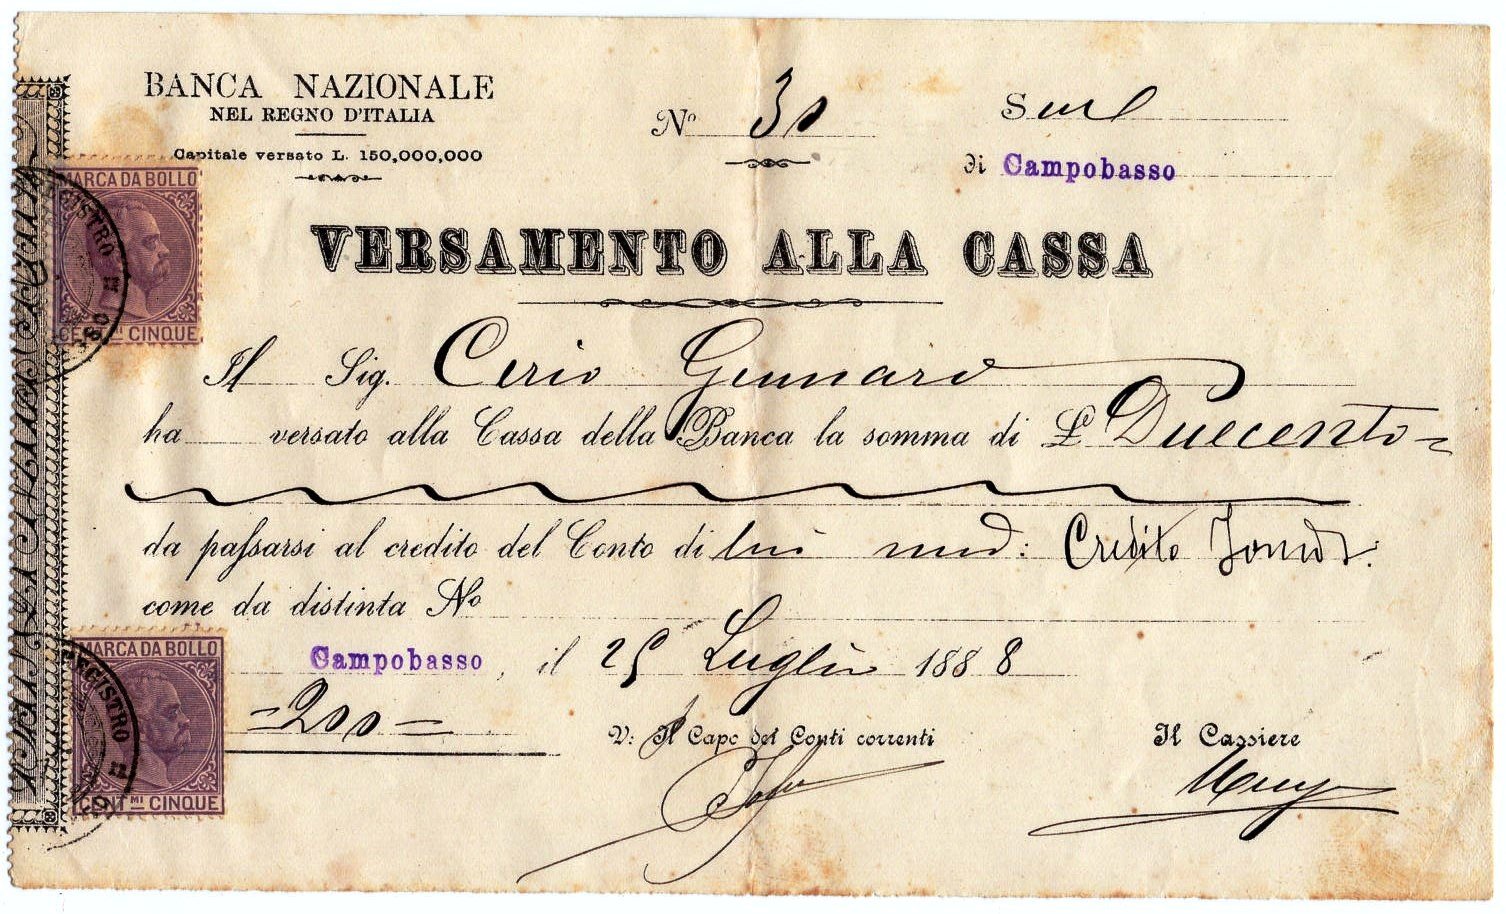 BANCA NAZIONALE
NEL REGNO D'ITALIA
Capitale versato L. 150,000,000
No 30
di Campobasso
MARCA DA BOLLO
CENT.MI CINQUE
VERSAMENTO ALLA CASSA
Il Sig. Cerio Gennaro
ha versato alla Cassa della Banca la somma di L Duecento
da passarsi al credito del Conto di lui med: Credito Fond:
come da distinta No
Campobasso, il 25 Luglio 1888
=200=
V: Il Capo dei Conti correnti
Il Cassiere
MARCA DA BOLLO
REGISTRO
CENT.MI CINQUE